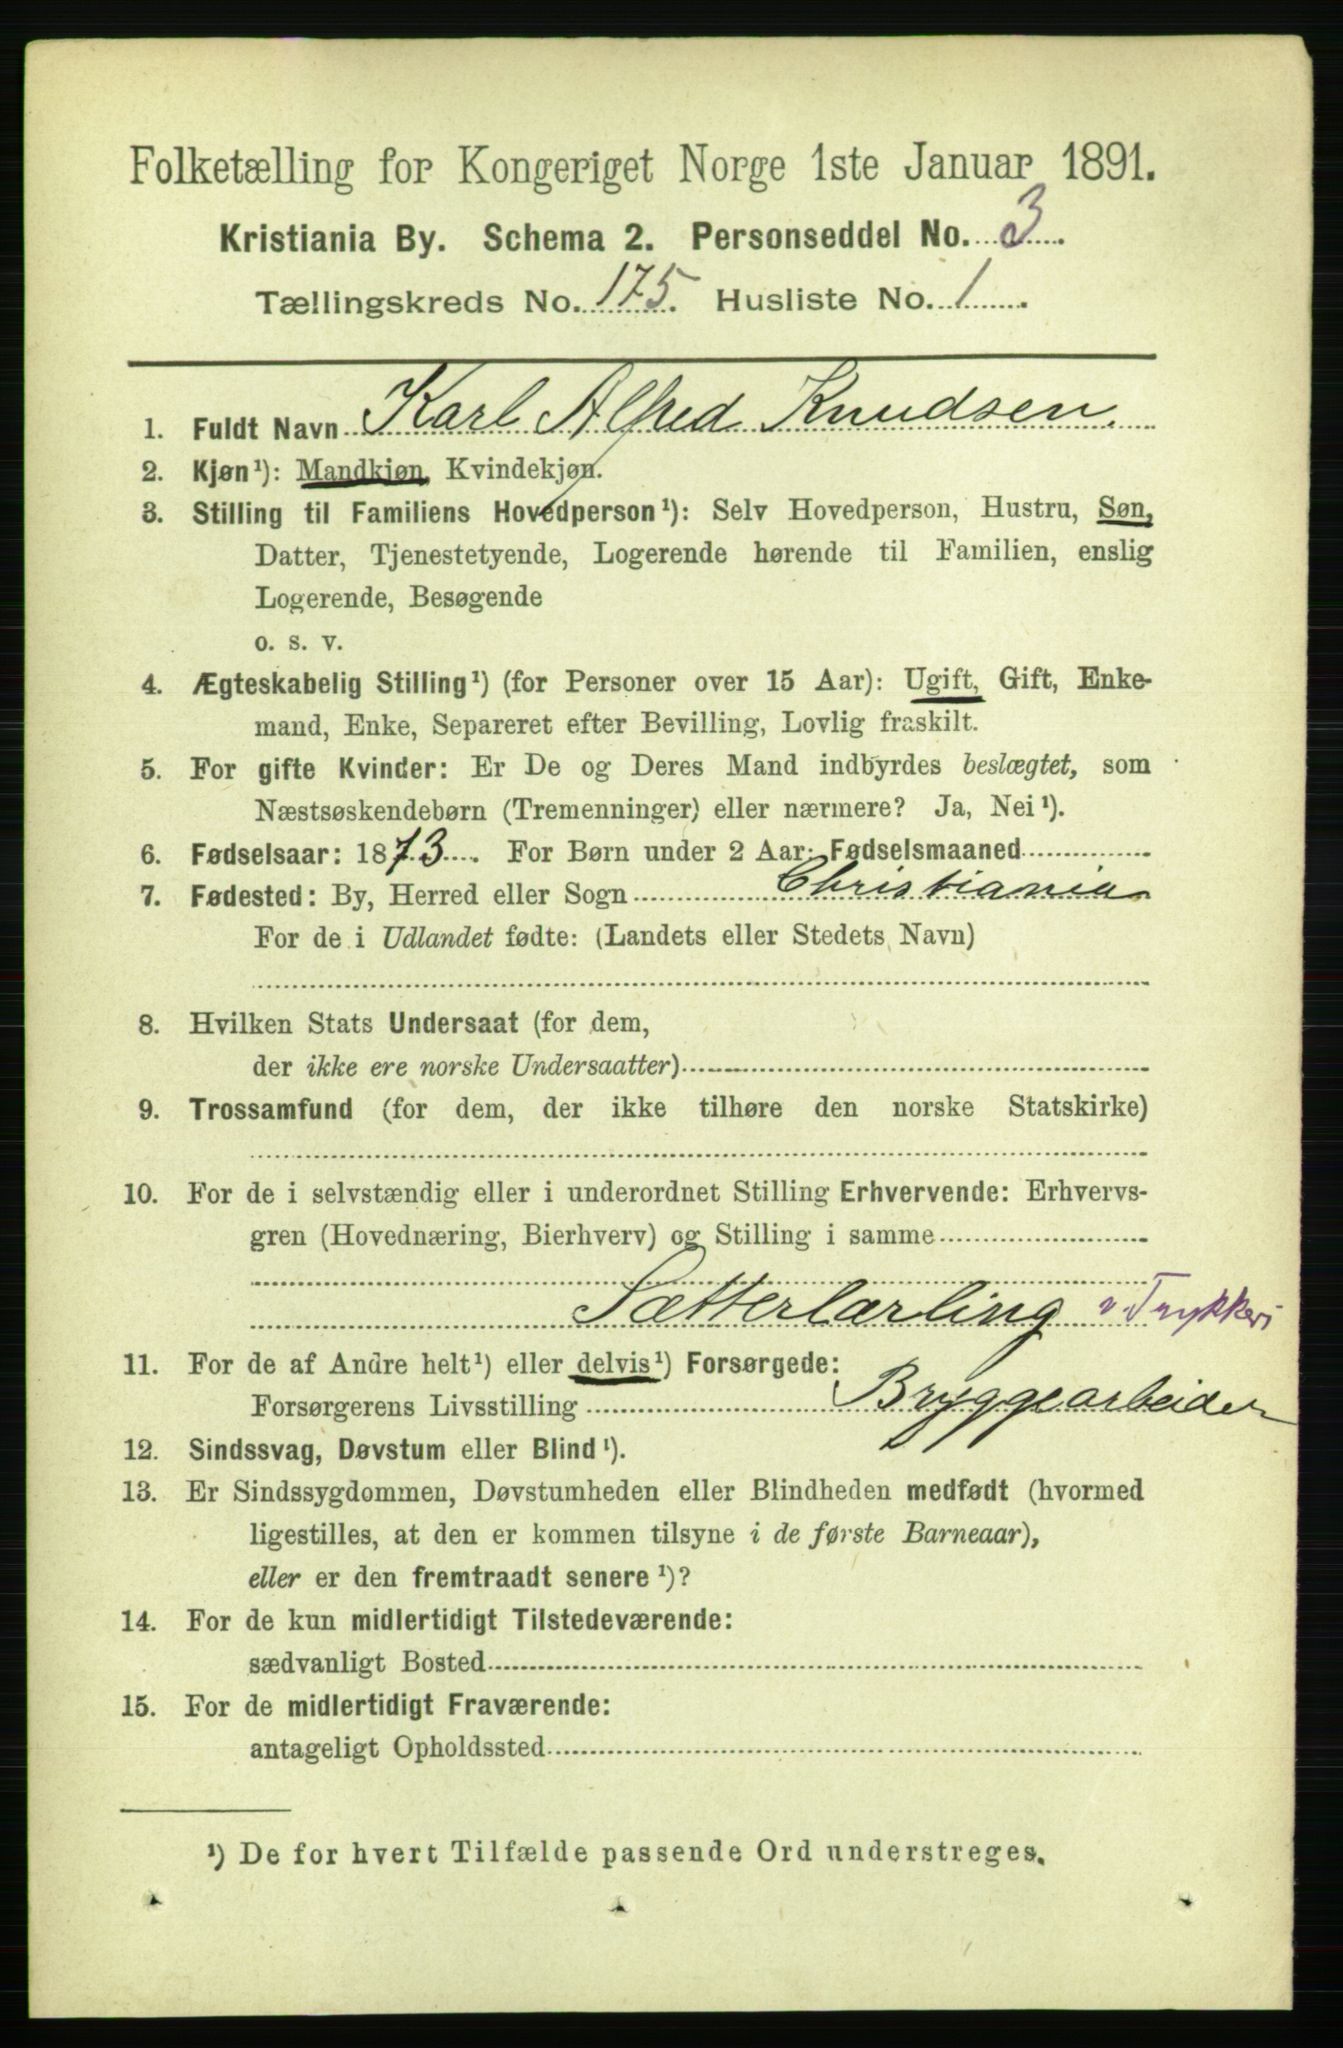 Folketælling for Kongeriget Norge 1ste Januar 1891.
Kristiania By. Schema 2. Personseddel No. 3
Tællingskreds No. 175. Husliste No. 1
1. Fuldt Navn Karl Alfred Knudsen.
2. Kjøn¹): Mandkjøn, Kvindekjøn.
3. Stilling til Familiens Hovedperson¹): Selv Hovedperson, Hustru, Søn,
Datter, Tjenestetyende, Logerende hørende til Familien, enslig
Logerende, Besøgende
o. s. v.
4. Ægteskabelig Stilling¹) (for Personer over 15 Aar): Ugift, Gift, Enke-
mand, Enke, Separeret efter Bevilling, Lovlig fraskilt.
5. For gifte Kvinder: Er De og Deres Mand indbyrdes beslægtet, som
Næstsøskendebørn (Tremenninger) eller nærmere? Ja, Nei¹).
6. Fødselsaar: 1873. For Børn under 2 Aar: Fødselsmaaned
7. Fødested: By, Herred eller Sogn Christiania
For de i Udlandet fødte: (Landets eller Stedets Navn)
8. Hvilken Stats Undersaat (for dem,
der ikke ere norske Undersaatter)
9. Trossamfund (for dem, der ikke tilhøre den norske Statskirke)
10. For de i selvstændig eller i underordnet Stilling Erhvervende: Erhvervs-
gren (Hovednæring, Bierhverv) og Stilling i samme
Sætterlærling v. Trykkeri
11. For de af Andre helt¹) eller delvis¹) Forsørgede:
Forsørgerens Livsstilling Bryggearbeider
12. Sindssvag, Døvstum eller Blind¹).
13. Er Sindssygdommen, Døvstumheden eller Blindheden medfødt (hvormed
ligestilles, at den er kommen tilsyne i de første Barneaar),
eller er den fremtraadt senere¹)?
14. For de kun midlertidigt Tilstedeværende:
sædvanligt Bosted
15. For de midlertidigt Fraværende:
antageligt Opholdssted
¹) De for hvert Tilfælde passende Ord understreges.